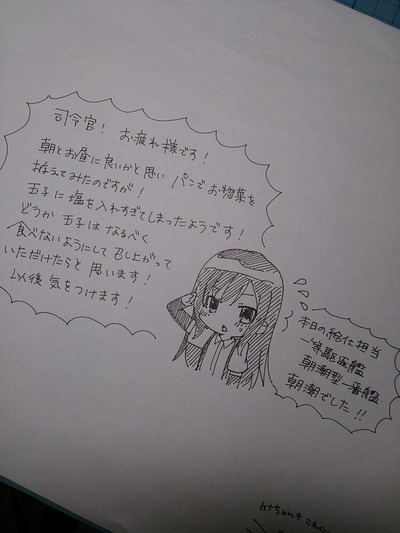 司令官! お疲れ様です!
朝とお昼に良いかと思い パンでお惣菜を
拵えてみたのですが!
玉子に塩を入れすぎてしまったようです!
どうか 玉子は なるべく
食べないようにして 召し上がって
いただけたらと 思います!
以後 気をつけます!
本日の給仕担当
一等駆逐艦
朝潮型一番艦
朝潮でした!!